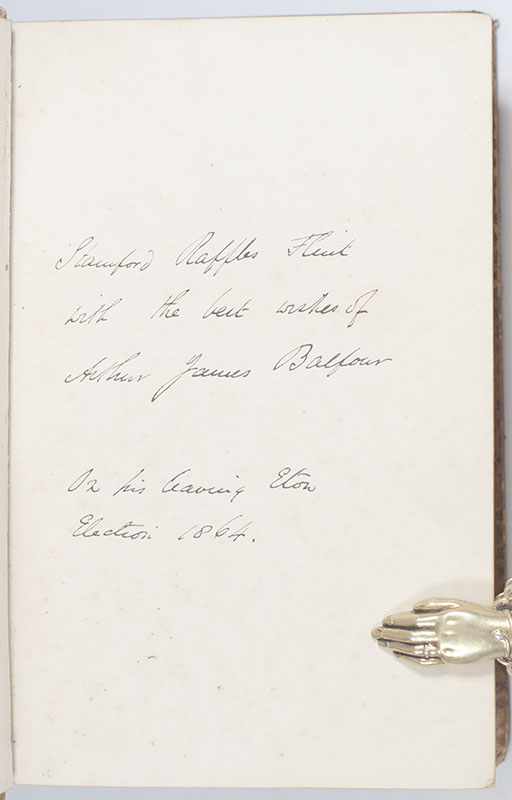 Stamford Raffles Flint
with the best wishes of
Arthur James Balfour
On his leaving Eton
Election 1864.